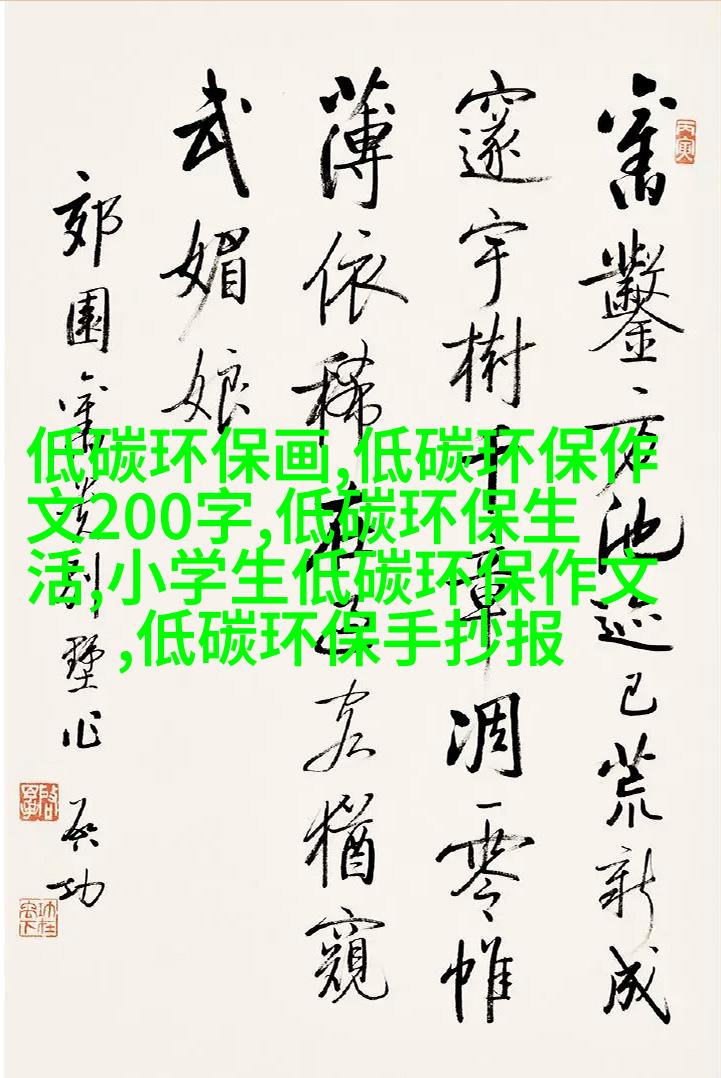 舊鑿方池迹已荒新成
邃宇樹千章凋零帷
薄依稀猶窺
武媚娘
郊園舊別墅作 启功
丙寅
低碳环保画,低碳环保作
文200字,低碳环保生
活,小学生低碳环保作文
,低碳环保手抄报